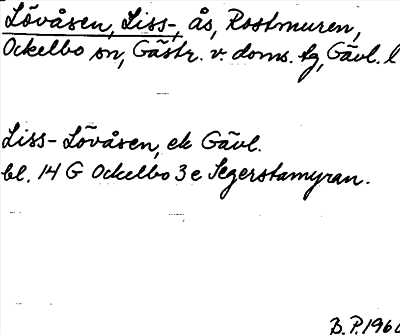 Lövåsen, Liss-, ås, Rostmuren,
Ockelbo sn, Gästr. v. doms. tg, Gävl. l
Liss-Lövåsen, ek Gävl.
bl. 14 G Ockelbo 3 e Segerstamyran.
B.P. 1960